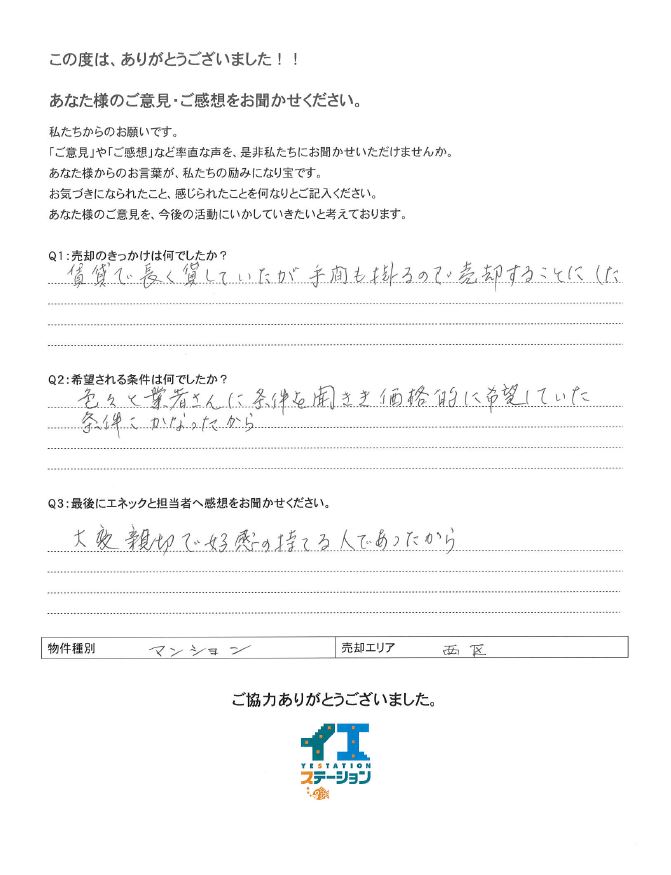 この度は、ありがとうございました！！
あなた様のご意見・ご感想をお聞かせください。
私たちからのお願いです。
「ご意見」や「ご感想」など率直な声を、是非私たちにお聞かせいただけませんか。
あなた様からのお言葉が、私たちの励みになり宝です。
お気づきになられたこと、感じられたことを何なりとご記入ください。
あなた様のご意見を、今後の活動にいかしていきたいと考えております。
Q1：売却のきっかけは何でしたか？
賃貸で長く貸していたが手間も掛るので売却することにした
Q2：希望される条件は何でしたか？
色々と業者さんに条件を聞き価格的に希望していた
条件にかなったから
Q3：最後にエネックと担当者へ感想をお聞かせください。
大変親切で好感の持てる人であったから
物件種別 マンション 売却エリア 西区
ご協力ありがとうございました。
イエ
YESTATION
ステーション